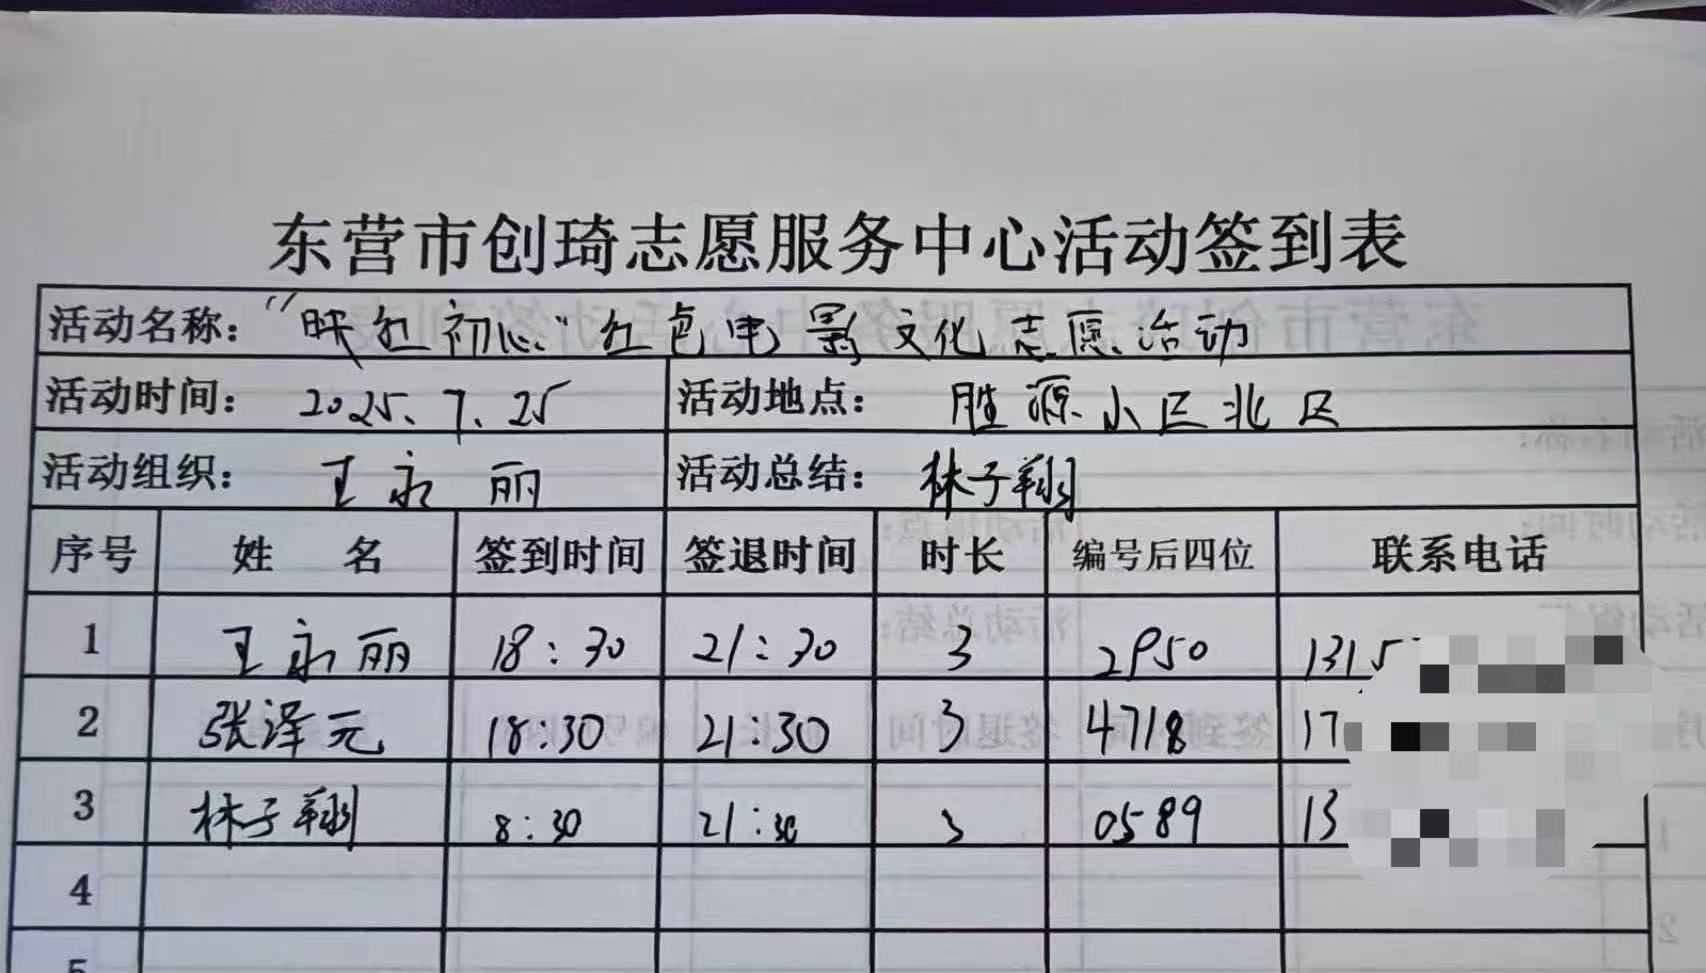 东营市创琦志愿服务中心活动签到表
活动名称：“映红初心”红色电影文化志愿活动
活动时间：2025.7.25 活动地点：胜源小区北区
活动组织：王永丽 活动总结：林子翔
序号 姓 名 签到时间 签退时间 时长 编号后四位 联系电话
1 王永丽 18:30 21:30 3 2950 1315
2 张泽元 18:30 21:30 3 4718 17
3 林子翔 8:30 21:30 3 0589 13
4
5